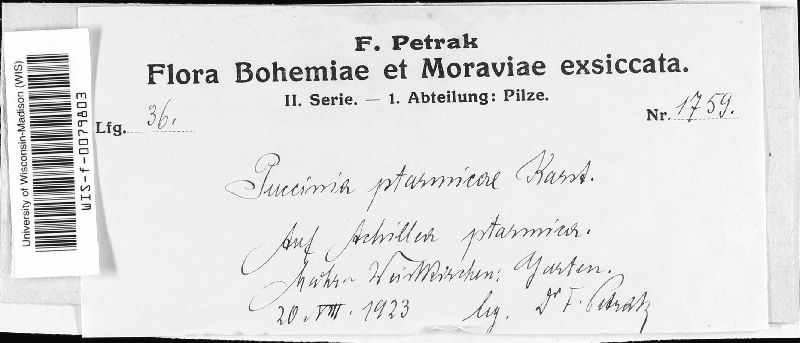 F. Petrak
Flora Bohemiae et Moraviae exsiccata.
II. Serie. — 1. Abteilung: Pilze.
Lfg. 36.
Nr. 1759.
Puccinia ptarmicae Karst.
Auf Achillea ptarmica.
Mähr. Weisskirchen: Garten.
20. VIII. 1923 leg. Dr F. Petrak
University of Wisconsin-Madison (WIS)
WIS-f-0079803